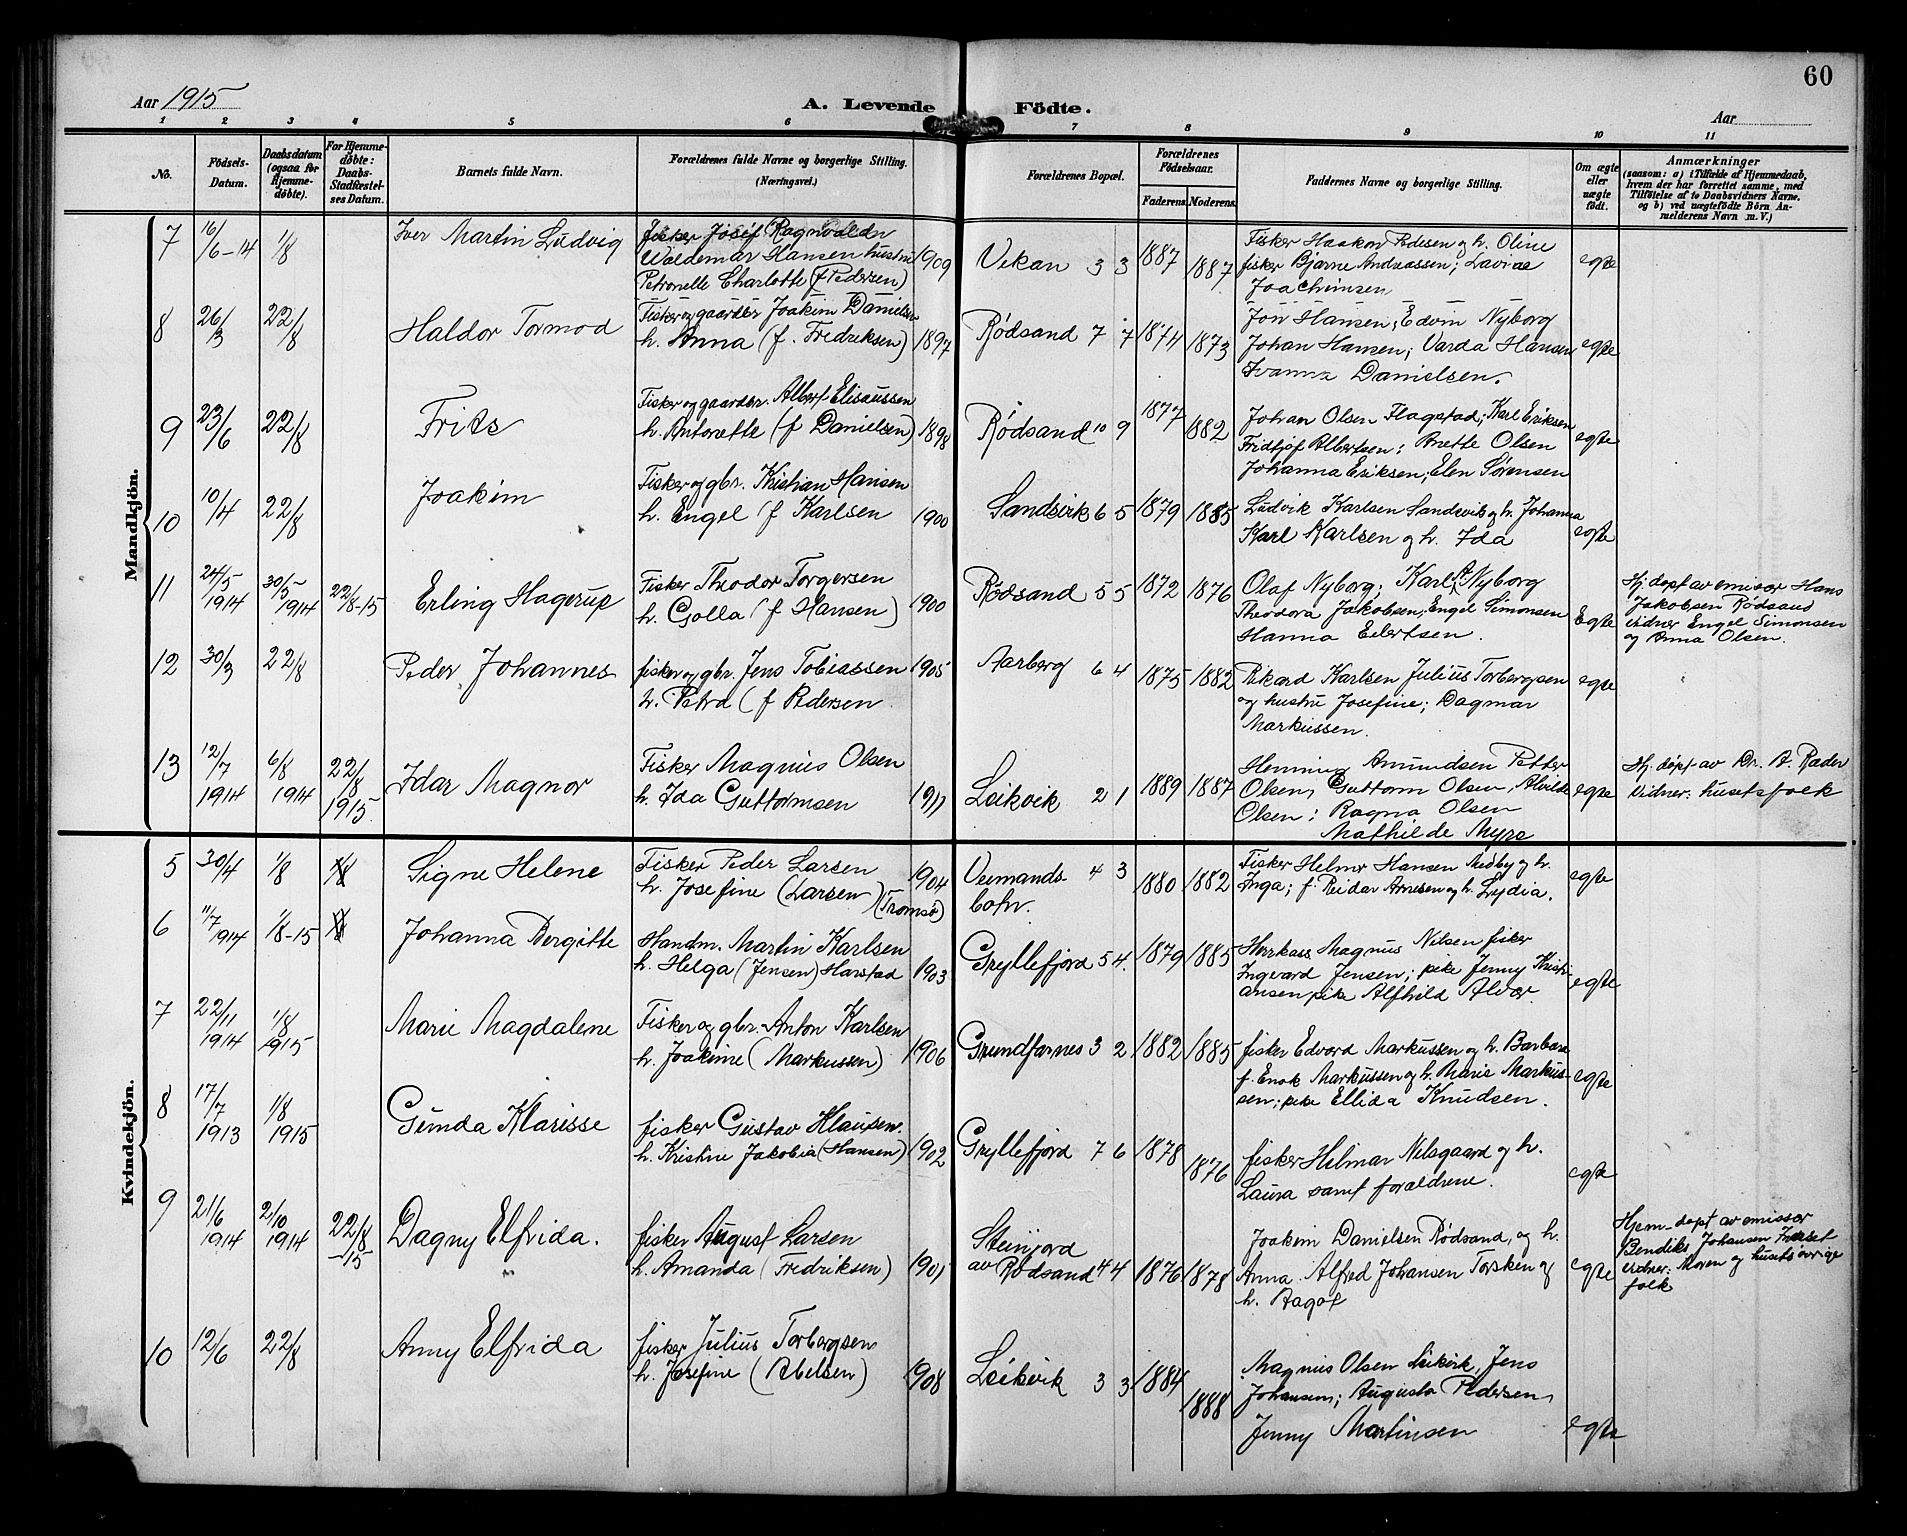 60
Aar 1915
A. Levende Födte.
Aar
1 2 3 4 5 6 7 8 9 10 11
No.
Födsels-
Datum.
Daabsdatum
(ogsaa for
Hjemme-
döbte).
For Hjemme-
döbte:
Daabs-
Stadfæstel-
ses Datum.
Barnets fulde Navn.
Forældrenes fulde Navne og borgerlige Stilling.
(Næringsvei.)
Forældrenes Bopæl.
Forældrenes
Födselsaar.
Faderens.
Moderens.
Faddernes Navne og borgerlige Stilling.
Om ægte
eller
uægte
födt.
Anmærkninger
(saasom: a) i Tilfælde af Hjemmedaab,
hvem der har forrettet samme, med
Tilföielse af to Daabsvidners Navne.
og b) ved uægtefödte Börn An-
melderens Navn m. V.)
Mandkjön.
7
16/6-14
1/8
Iver Martin Ludvig
fisker Josef Ragnvaldn
Waldemar Hansen hustru
Petronelle Charlotte (f Pedersen)
1909
Vekan 3 3
1887
1887
Fisker Haakon Pedersen og h. Oline
fisker Bjarne Andreassen; Lavine
Joachimsen
egte
8
26/3
22/8
Haldor Tormod
Fisker og gaardbr Joakim Danielsen
h. Anna (f. Fredriksen)
1897
Rødsand 7 7
1874
1873
Jon Hansen; Edvin Nyborg
Johan Hansen; Varda Hansen
Ivanna Danielsen.
egte
9
23/6
22/8
Frits
Fisker og gaardbr. Albert Elisaussen
h. Antonette (f Danielsen)
1898
Rødsand 10 9
1877
1882
Johan Olsen Flagstad; Karl Eriksen
Fridtjof Albertsen; Anette Olsen
Johanna Eriksen; Elen Sørensen
egte
10
10/4
22/8
Joakim
Fisker og gbr. Kristian Hansen
h. Engel f Karlsen
1900
Sandvik 6 5
1879
1885
Ludvik Karlsen Sandvik og h. Johanna
Karl Karlsen og h. Ida
egte
11
24/5
1914
30/5
1914
22/8-15
Erling Hagerup
Fisker Theodor Torgersen
h. Golla (f Hansen)
1900
Rødsand 5 5
1872
1876
Olaf Nyborg; Karl A Nyborg
Theodora Jakobsen, Engel Simonsen
Hanna Edertsen.
Egte
Hj. døpt av emissør Hans
Jakobsen Rødsand
vidner Engel Simonsen
og Anna Olsen.
12
30/3
22/8
Peder Johannes
fisker og gbr. Jens Tobiassen
h. Petra (f Pedersen
1905
Aarberg 6 4
1875
1882
Rikard Karlsen Julius Torbergsen
og hustru Josefine; Dagmar
Markussen.
egte
13
12/7
1914
6/8
1914
22/8
1915.
Idar Magnor
Fisker Magnus Olsen
h. Ida Guttormsen
1911
Leikvik 2 1
1889
1887
Henning Amundsen Petter
Olsen, Guttorm Olsen, Alvilde
Olsen; Ragna Olsen
Mathilde Myre
egte
Hj. døpt av Dr. A. Ræder
Vidner: husets folk
Kvindekjön.
5
30/4
1/8
Signe Helene
Fisker Peder Larsen
h. Josefine (Larsen) (Tromsø)
1904
Veimands-
botn.
4 3
1880
1882
Fisker Helmer Hansen Medby og h.
Inga; f. Reidar Arnesen og h. Lydia.
egte
6
11/7
1914
1/8-15
Johanna Bergitte
Handm. Martin Karlsen
h. Helga (Jensen) Harstad
1903
Gryllefjord 5 4.
1879
1885
Herrkass Magnus Nilsen fisker
Ingvard Jensen; pike Jenny Kristi-
ansen pike Alfhild Alvær.
egte
7
22/11
1914
1/8
1915
Marie Magdalene
Fisker og gbr. Anton Karlsen
h. Joakime (Markussen)
1906
Grundfarnes 3 2
1882
1885
fisker Edvard Markussen og h. Barbara
f. Enok Markussen og h. Marie Markus-
sen; pike Ellida Knudsen.
egte
8
17/7
1913
1/8
1915
Gunda Klarisse
fisker Gustav Klausen.
h. Kristine Jakobia (Hansen)
1902
Gryllefjord 7 6
1878
1876
fisker Hilmar Nilsgaard og h.
Laura samt forældrene.
egte
9
21/6
1914
2/10
1914
22/8
-15
Dagny Elfrida.
fisker August Larsen
h. Amanda (Fredriksen)
1901
Steinjord
av
Rødsand 4 4
1876
1878
Joakim Danielsen Rødsand, og h.
Anna. Alfred Johansen Torsken og
h. Aagot
egte
Hjem-døpt av emissør
Bendiks Johansen
vidner: Moren og husets øvrige
folk
10
12/6
22/8
Anny Elfrida
fisker Julius Torbergsen
h. Josefine (Abelsen)
1908
Leikvik 3 3
1884
1888
Magnus Olsen Leikvik, Jens
Johansen; Augusta Pedersen,
Jenny Martinsen
egte